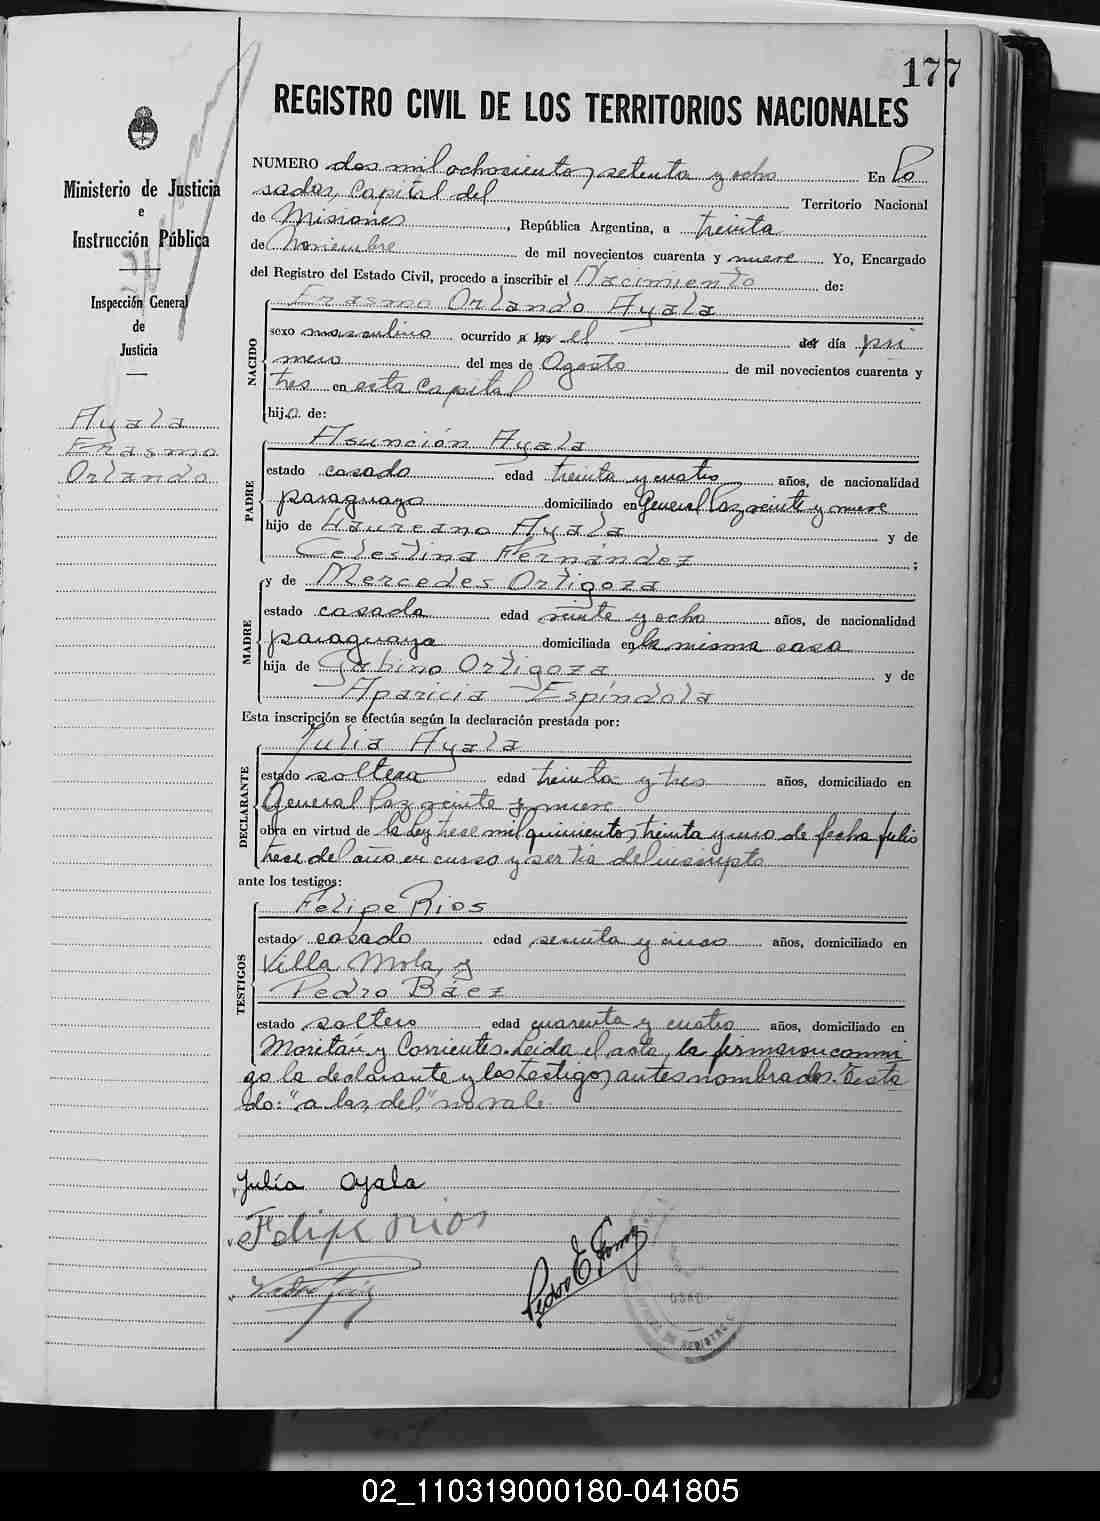 177
REGISTRO CIVIL DE LOS TERRITORIOS NACIONALES
Ministerio de Justicia
e
Instrucción Pública
Inspección General
de
Justicia
Ayala
Erasmo
Orlando
NUMERO dos mil ochocientos setenta y ocho En Po
sadas, Capital del Territorio Nacional
de Misiones, República Argentina, a treinta
de Noviembre de mil novecientos cuarenta y nueve Yo, Encargado
del Registro del Estado Civil, procedo a inscribir el Nacimiento de:
NACIDO
Erasmo Orlando Ayala
sexo masculino ocurrido a las el del día pri
mero del mes de Agosto de mil novecientos cuarenta y
tres en esta Capital
hijo de:
PADRE
Asunción Ayala
estado casado edad treinta y cuatro años, de nacionalidad
paraguayo domiciliado en General Paz veinte y nueve
hijo de Laureano Ayala y de
Celestina Fernández ;
MADRE
y de Mercedes Ortigoza
estado casada edad veinte y ocho años, de nacionalidad
paraguaya domiciliada en la misma casa
hija de Gabino Ortigoza y de
Aparicia Espíndola
Esta inscripción se efectúa según la declaración prestada por:
DECLARANTE
Julia Ayala
estado soltera edad treinta y tres años, domiciliado en
General Paz veinte y nueve
obra en virtud de la ley trece mil quinientos treinta y uno de fecha julio
trece del año en curso y ser tia del inscripto
ante los testigos:
TESTIGOS
Felipe Rios
estado casado edad años, domiciliado en
Villa Mola, y
Pedro Báez
estado soltero edad cuarenta y cuatro años, domiciliado en
Moritán y Corrientes. Leida el acta, la firmaron conmi
go la declarante y los testigos antes nombrados. Testa
do: "a las, del," no vale.
Julía Ayala
Felipe rios
Pedro E
02_110319000180-041805